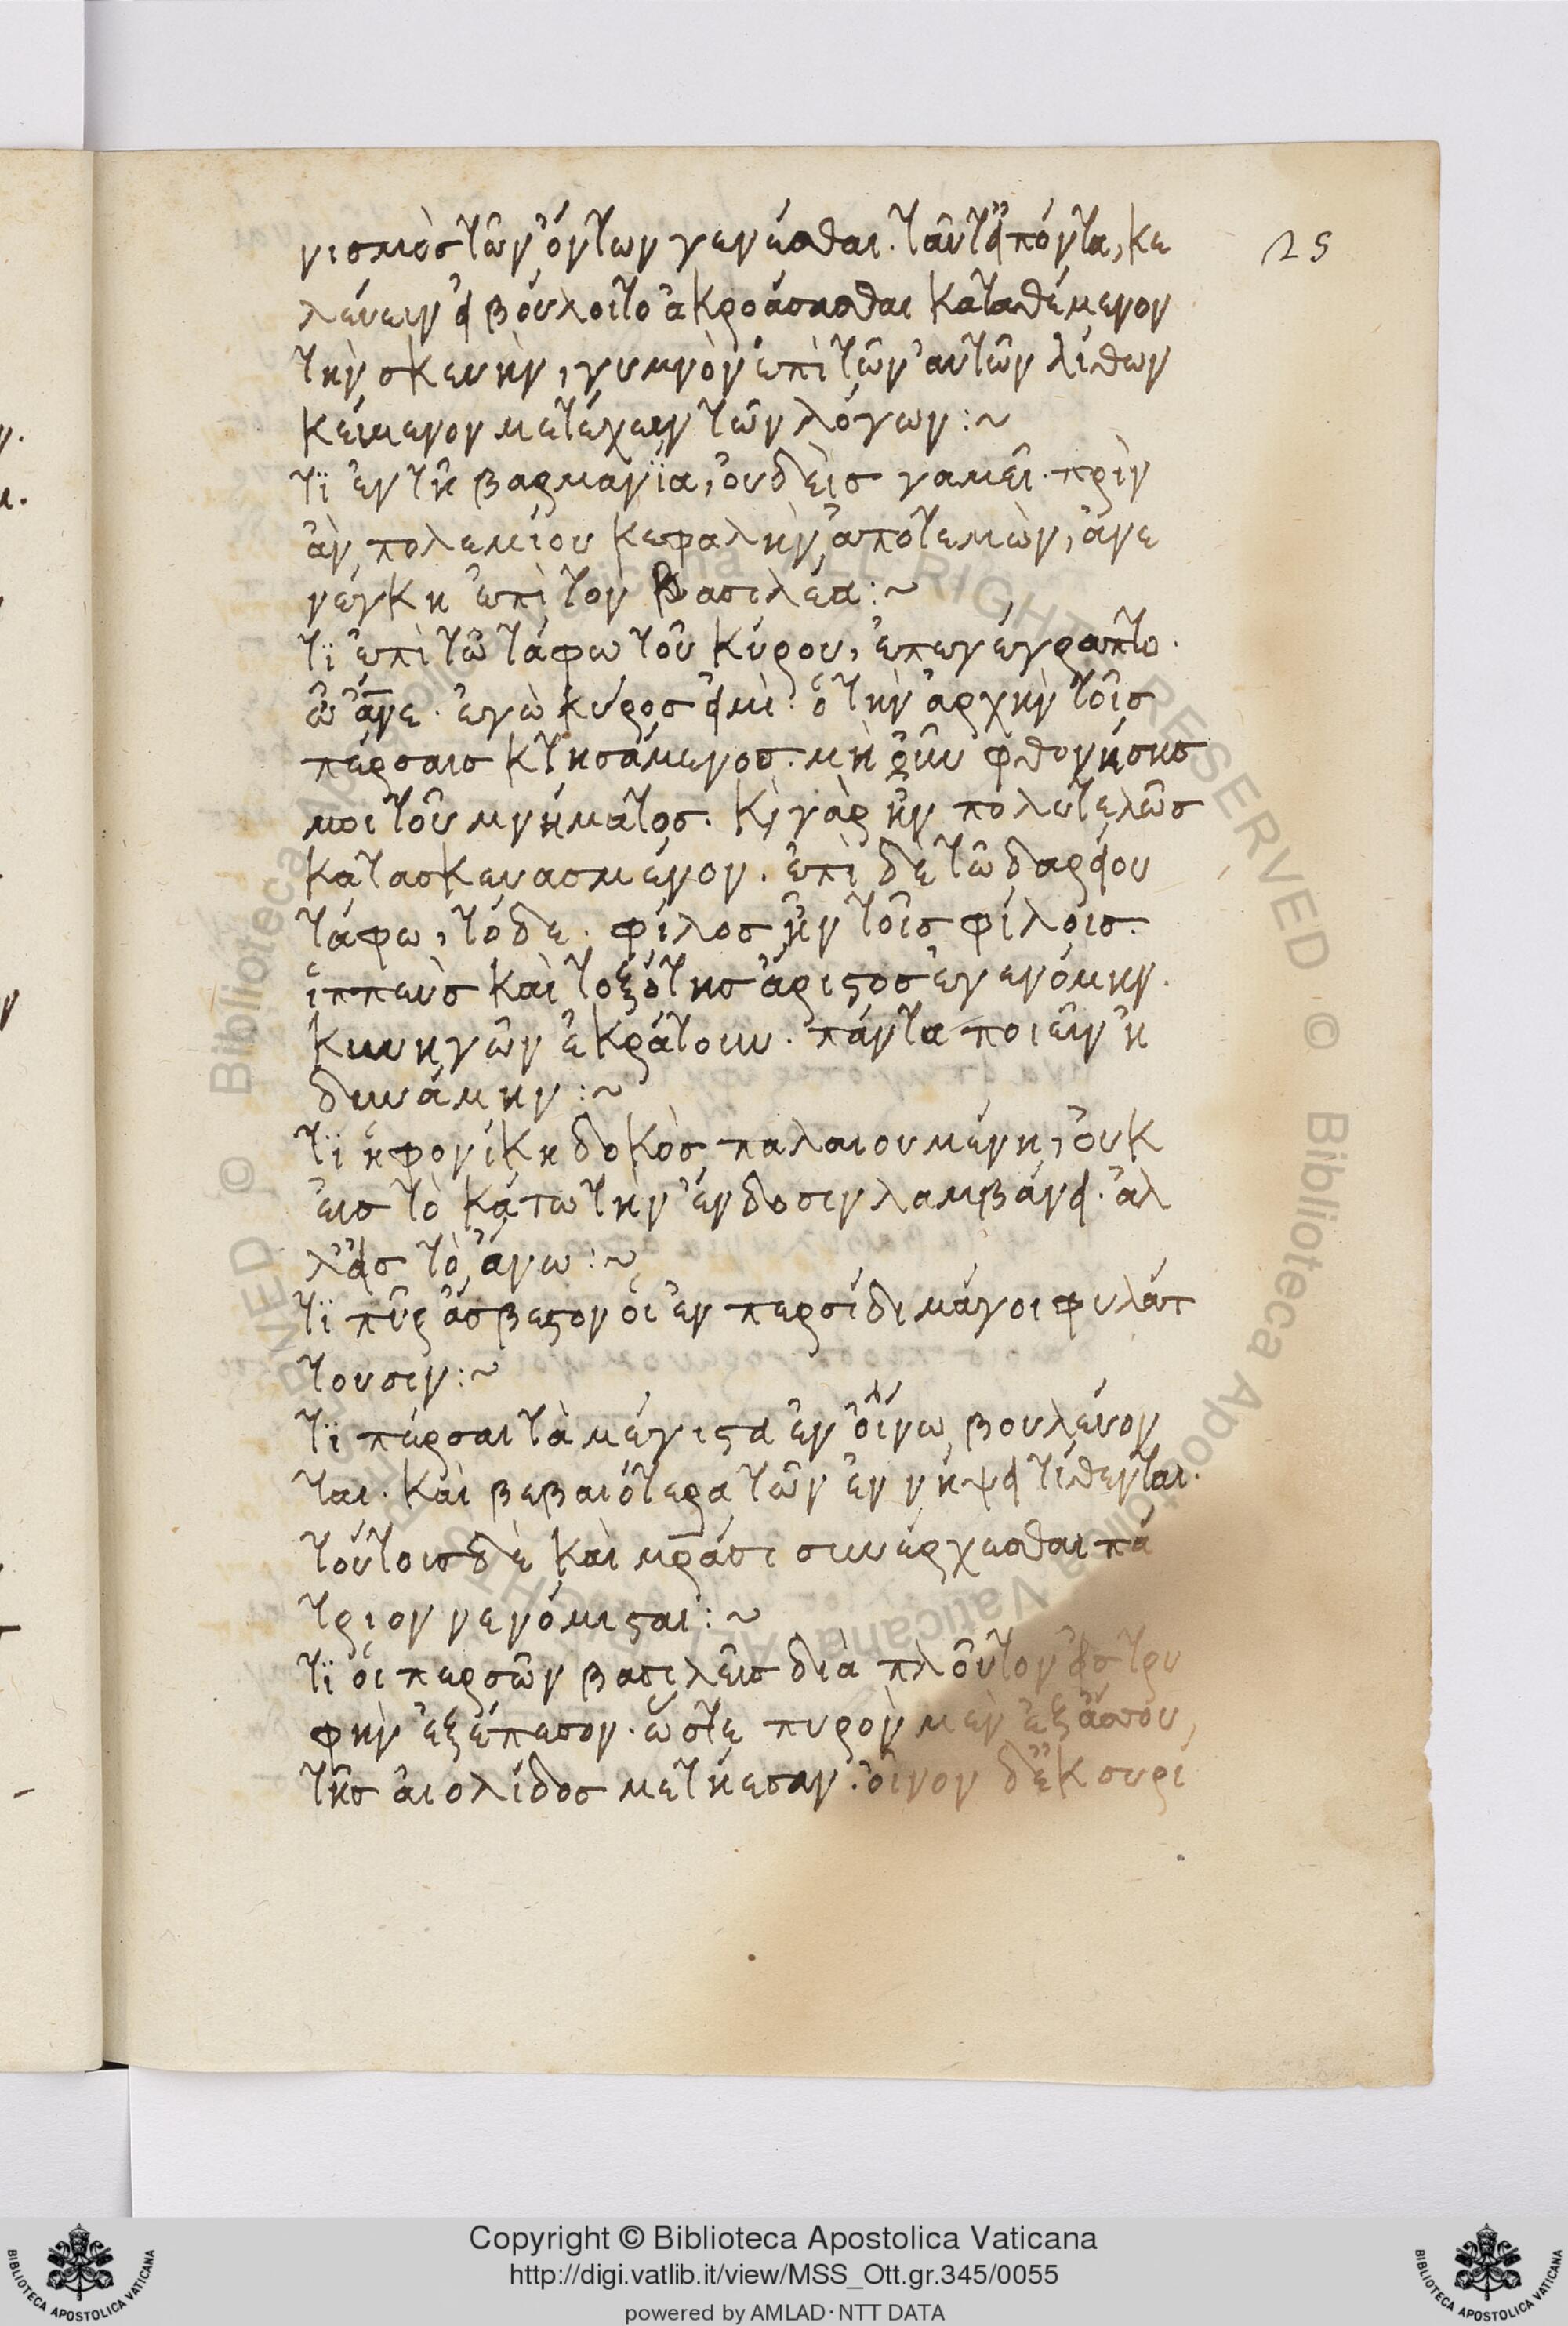 νισμὸς τῶν ὄντων γενέσθαι. ταῦτ' εἰπόντα, κε
λεύειν εἰ βούλοιτο ἀκροάσασθαι καταθέμενον
τὴν σκευὴν, γυμνὸν ἐπὶ τῶν αὐτῶν λίθων
κείμενον μετέχειν τῶν λόγων:~
τϊ ἐν τῆ βαρμανΐα, οὐδεὶς γαμεῖ. πρὶν
ἂν πολεμίου κεφαλὴν ἀποτεμὼν, ἀνε
νέγκη ἐπὶ τὸν βασιλέα:~
τϊ ἐπὶ τῶ τάφω τοῦ κύρου, ἐπεγέγραπτο.
ὦ ἄνε. ἐγὼ κύρος εἰμὶ. ὁ τὴν ἀρχὴν τοῖς
πέρσαις κτησάμενος. μὴ οὖν φθονήσης
μοι τοῦ μνήματος. κ, γὰρ ἦν πολυτελῶς
κατασκευασμένον. ἐπὶ δὲ τῶ δαρείου
τάφω, τόδε. φίλος ἦν τοῖς φίλοις.
ἱππεὺς καὶ τοξότης ἄριστος ἐγενόμην.
κυνηγῶν ἐκράτουν. πάντα ποιεῖν ἠ
δυνάμην:~
τϊ ἡ φονίκη δοκὸς παλαιουμένη, οὐκ
εἰς τὸ κάτω τὴν ἔνδοσιν λαμβάνει. ἀλ
λ' εἰς τὸ ἄνω:~
τϊ πῦρ ἄσβεστον οἱ ἐν περσίδι μάγοι φυλάτ
τουσιν:~
τϊ πέρσαι τὰ μέγιστα ἐν οἴνω βουλεύον
ται. καὶ βεβαιότερα τῶν ἐν νήψει τίθενται.
τούτοις δὲ καὶ μρ̅άσι συνέρχεσθαι πά
τριον νενόμισται:~
τϊ οἱ περσῶν βασιλεῖς διὰ πλοῦτον εἰς τρυ
φὴν ἐξέπεσον. ὥστε πυρὸν μὲν ἐξ ἄσσου,
τῆς αἰολίδος μετήεσαν. οἶνον δ' ἐκ συρί
25
Copyright © Biblioteca Apostolica Vaticana
http://digi.vatlib.it/view/MSS_Ott.gr.345/0055
powered by AMLAD·NTT DATA